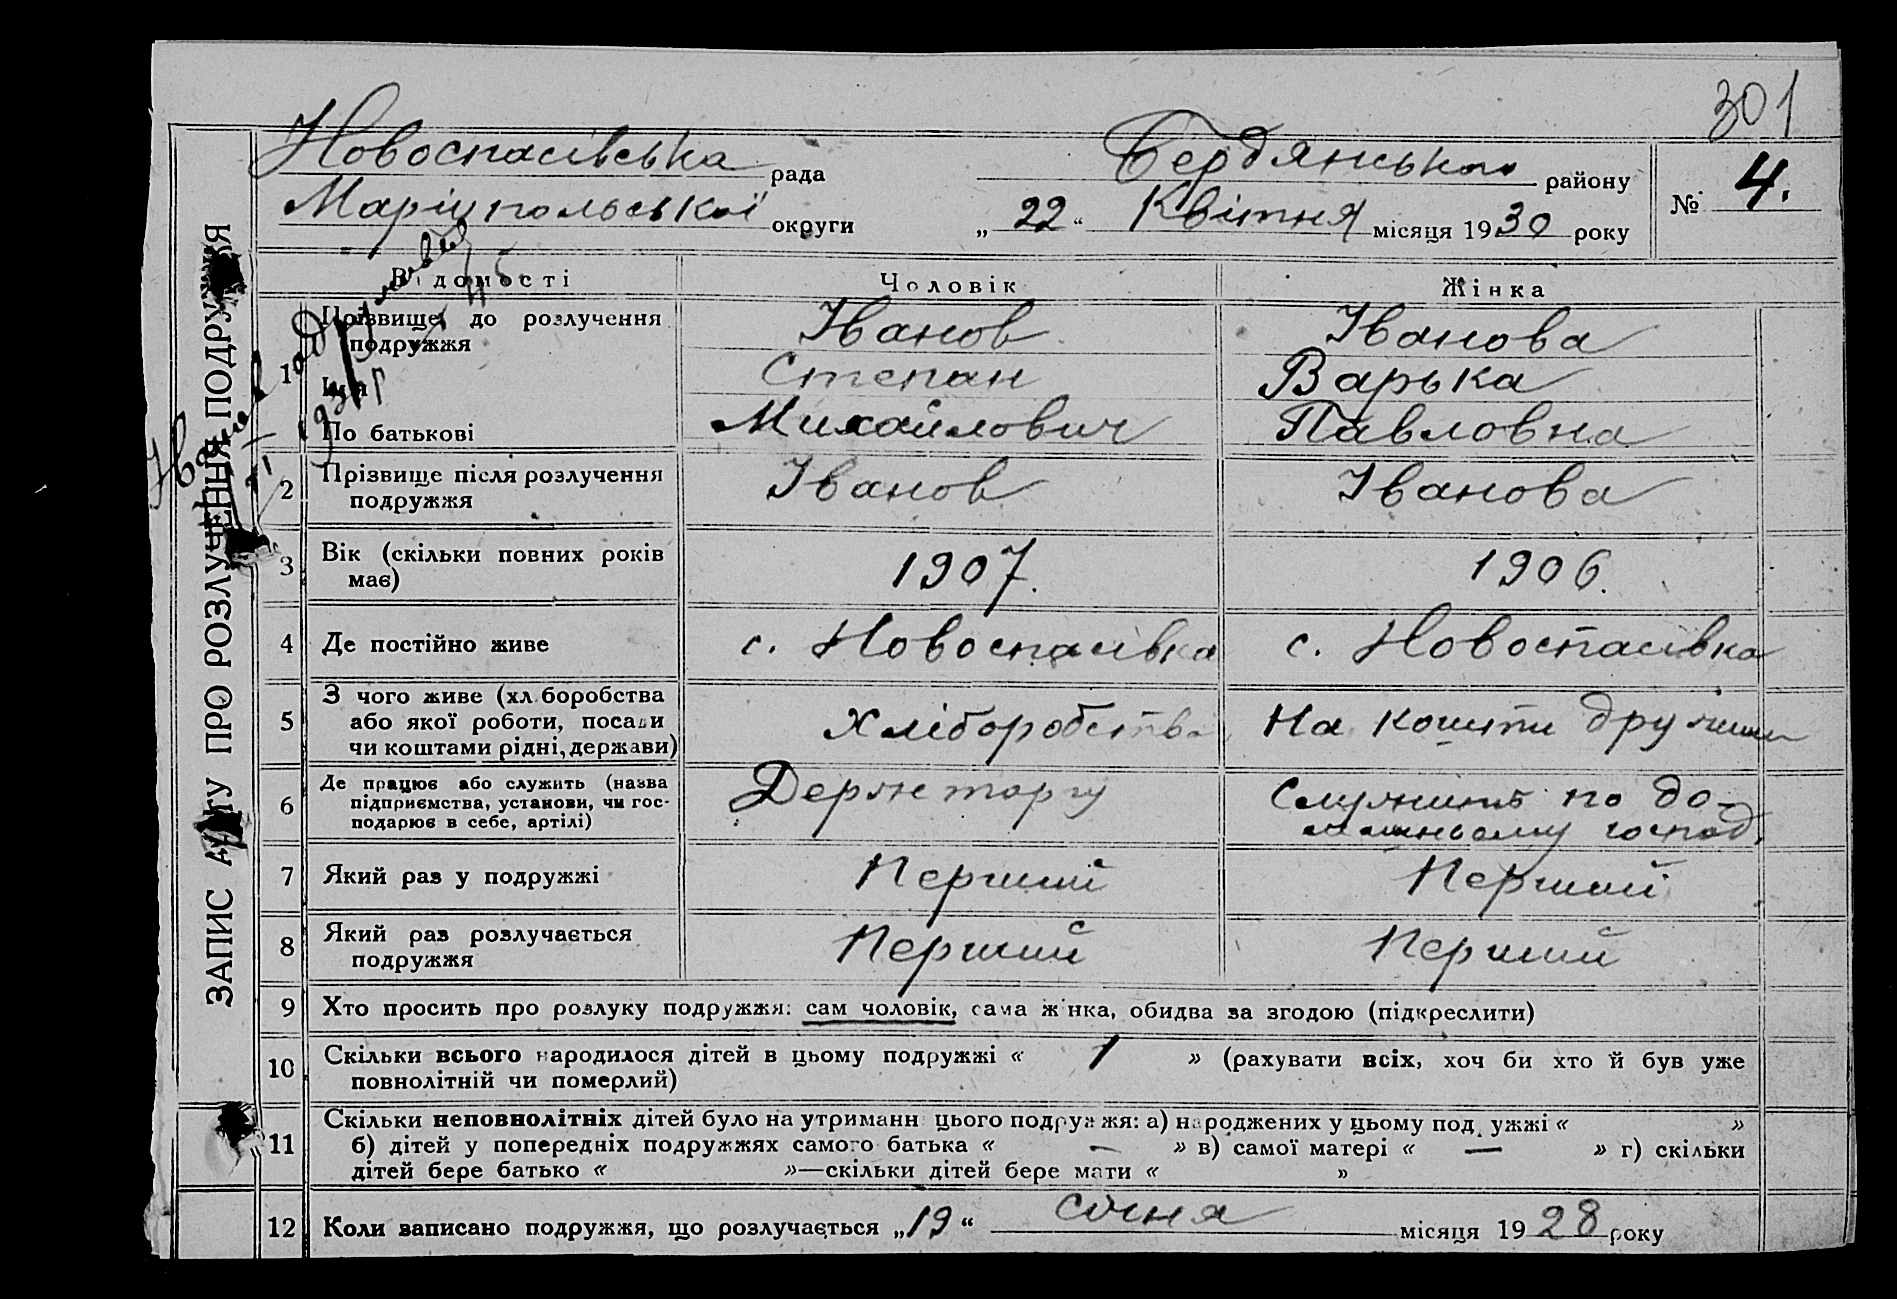 301
Новоспасівська рада Бердянського району № 4.
Маріупольської округи „22“ Квітня місяця 1930 року
ЗАПИС АКТУ ПРО РОЗЛУЧЕННЯ ПОДРУЖЖЯ
Відомості Чоловік Жінка
1 Прізвище до розлучення подружжя Іванов Іванова
Ім'я Степан Варька
По батькові Михайлович Павловна
2 Прізвище після розлучення
подружжя Іванов Іванова
3 Вік (скільки повних років
має) 1907. 1906.
4 Де постійно живе с. Новоспасівка с. Новоспасівка
5 З чого живе (хліборобства
або якої роботи, посади
чи коштами рідні, держави) Хліборобства На кошти дружини
6 Де працює або служить (назва
підприємства, установи, чи гос-
подарює в себе, артілі) Держторгу Служить по до-
машньому господ.
7 Який раз у подружжі Перший Перший
8 Який раз розлучається
подружжя Перший Перший
9 Хто просить про розлуку подружжя: сам чоловік, сама жінка, обидва за згодою (підкреслити)
10 Скільки всього народилося дітей в цьому подружжі « 1 » (рахувати всіх, хоч би хто й був уже
повнолітній чи померлий)
11 Скільки неповнолітніх дітей було на утриманні цього подружжя: а) народжених у цьому подружжі « »
б) дітей у попередніх подружжях самого батька « — » в) самої матері « — » г) скільки
дітей бере батько « »—скільки дітей бере мати « »
12 Коли записано подружжя, що розлучається „19“ січня місяця 1928 року